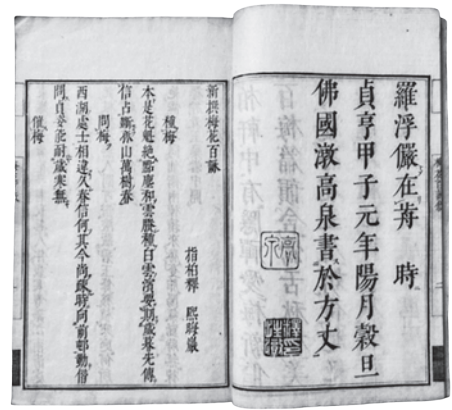 羅浮儼在 時
貞亨甲子元年陽月穀旦
佛國澂高泉書於方丈
新撰梅花百詠
指柏釋 巖
種梅
本是花魁絕點塵和雲賸種白雲濱要期歲暮先傳
信占斷春山萬樹春
問梅
西湖處士相違久春信何其今尚疎時向前邨勤借
問貞姿能耐歲寒無
催梅